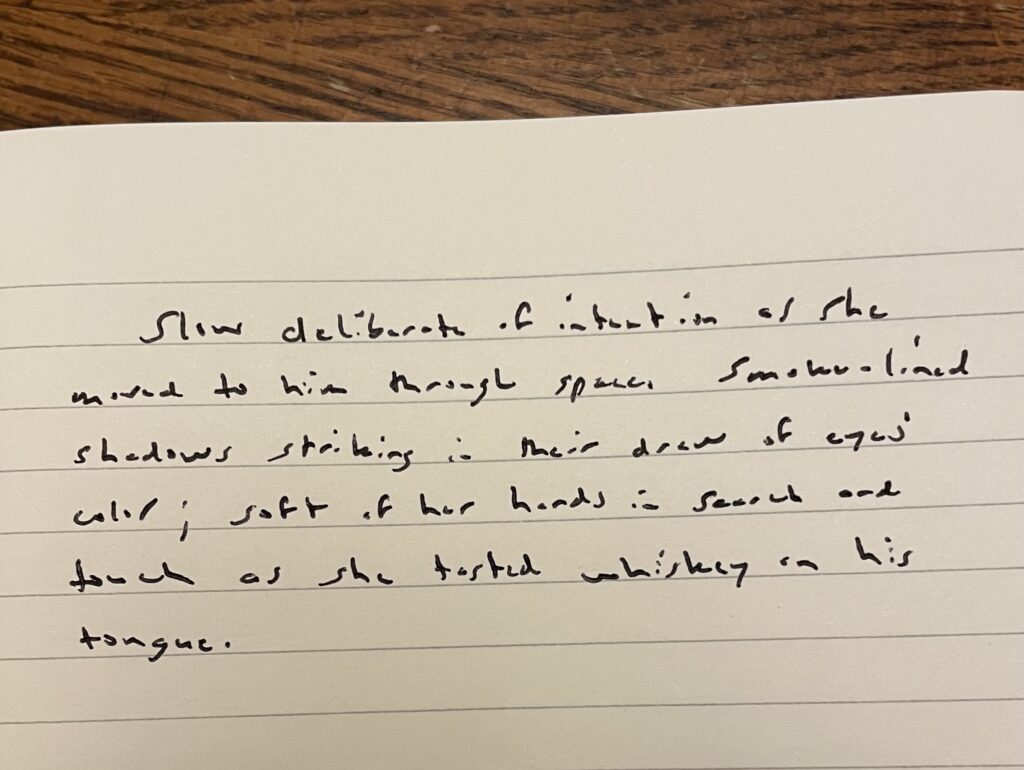 Slow deliberate of intention as she
moved to him through space. Smoke-lined
shadows striking in their draw of eyes'
color; soft of her hands in search and
touch as she tasted whiskey on his
tongue.